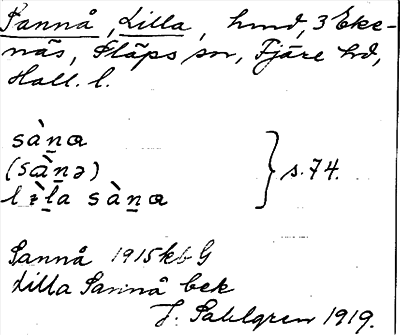 Sannå, Lilla, hmd, 3 Eke-
näs, Släps sn, Fjäre hd,
Hall. l.
sàṉɑ
(sɑ̀ṉə) } s. 74.
lɪ̀ḻa sàṉɑ
Sannå 1915 kbG
Lilla Sannå bek
J. Sahlgren 1919.